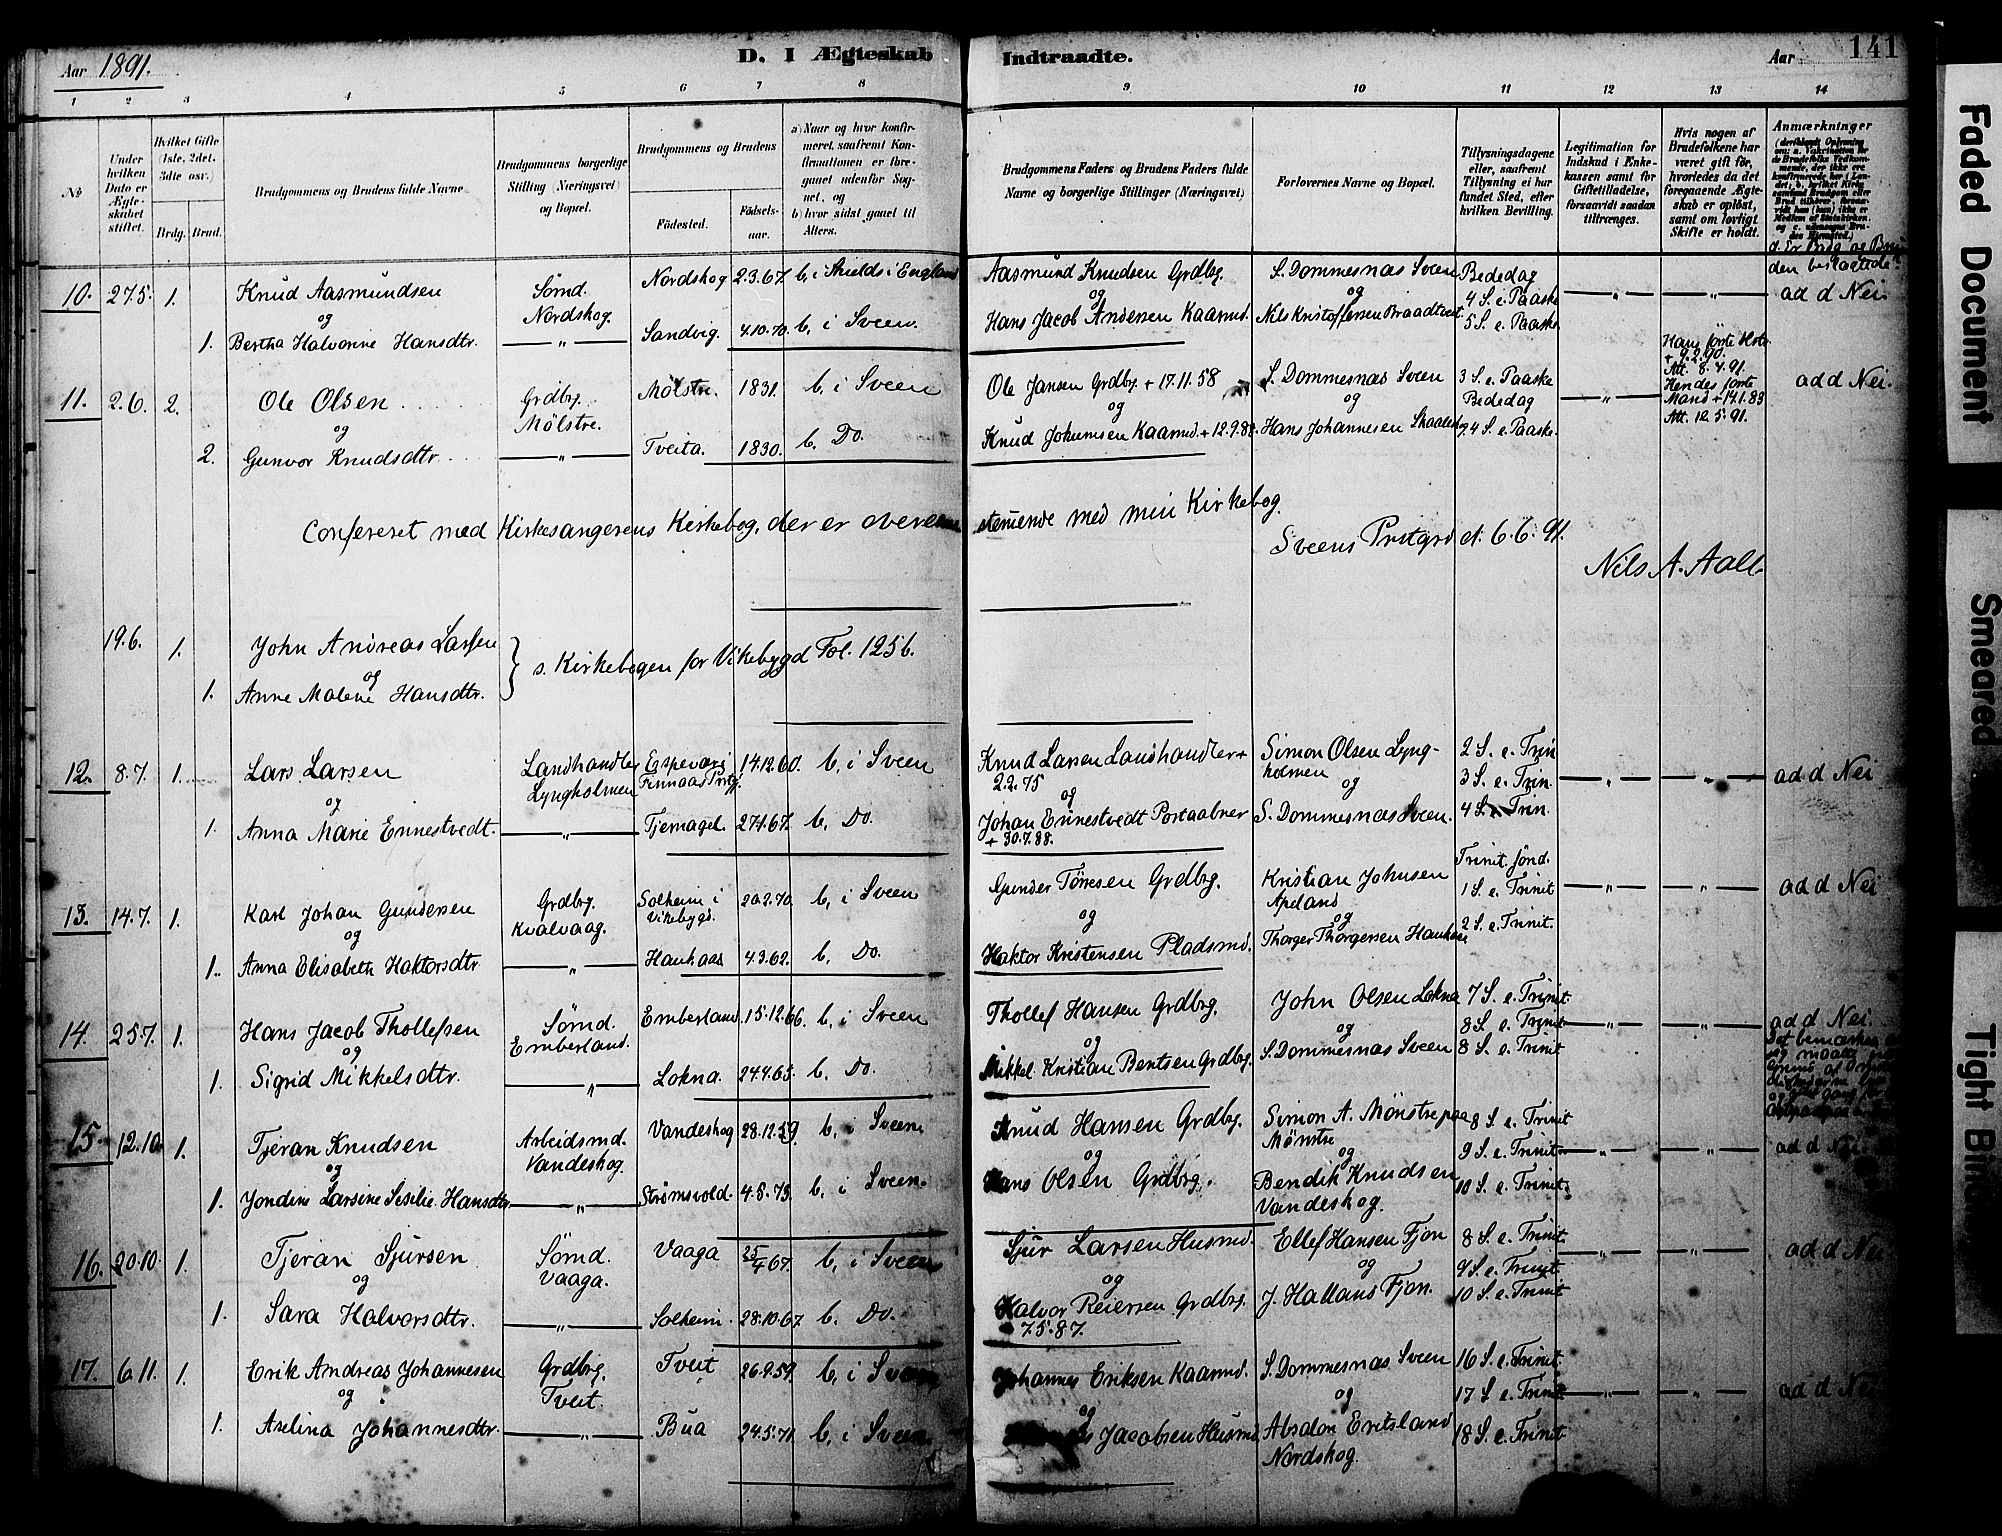 Aar 1891.
D. I Ægteskab Indtraadte.
Aar 141
1 2 3 4 5 6 7 8 9 10 11 12 13 14
No
Under hvilken Dato er Ægteskabet stiftet.
Hvilket Gifte (1ste, 2det, 3die osv.)
Brdg. Brud.
Brudgommens og Brudens fulde Navne.
Brudgommens borgerlige Stilling (Næringsvei) og Bopæl.
Brudgommens og Brudens
Fødested.
Fødselsaar.
a) Naar og hvor konfirmeret, saafremt Konfirmationen er foregaaet udenfor Sognet, og
b) hvor sidst gaaet til Alters.
Brudgommens Faders og Brudens Faders fulde Navne og borgerlige Stillinger (Næringsvei)
Forlovernes Navne og Bopæl.
Tillysningsdagene eller, saafremt Tillysning ei har fundet Sted, efter hvilken Bevilling.
Legitimation for Indskud i Enkekassen samt for Giftetilladelse, forsaavidt saadan tiltrænges.
Hvis nogen af Brudefolkene har været gift før, hvorledes da det foregaaende Ægteskab er opløst, samt om lovligt Skifte er holdt.
Anmærkninger
d. Er Brdg. og Bru-
den beslægtede?
10. 27.5. 1. Knud Aasmundsen Sømd. Nordskog. Nordskog 2.3.67. b. i Shields i England Aasmund Knudsen Grdbg. S. Dommesnas Sveen Bededag — " — — " — ad d Nei
og og og 4 S. e. Paaske
1. Bertha Halvorine Hansdtr. — " — Sandvig. 4.10.70. b. i Sveen. Hans Jacob Andersen Kaarmd. Nils Kristoffersen Braadtvet 5 S. e. Paaske
11. 2.6. 2. Ole Olsen Grdbg. Mølstre. Mølstre. 1831. b. i Sveen Ole Jansen Grdbg. + 17.11.58 S. Dommesnas Sveen 3 S. e. Paaske — " — Hans første Hstr. + 9.2.90. Att. 8.4.91. ad d Nei.
og og og Bededag Hendes første Mand + 14.1.83 Att. 12.5.91.
2. Gunvor Knudsdtr — " — Tveita. 1830. b. Do. Knud Johannesen Kaarmd. Hans Johannesen 4 S. e. Paaske
Confereret med Kirkesangerens Kirkebog, der er overens stemende med min Kirkebog.
Sveens Prstgrd d: 6.6.91.
Nils A. Aall
19.6. 1. John Andreas Larsen
og } s. Kirkebogen for Vikebygd Fol. 125 b.
1. Anne Malene Hansdtr.
12. 8.7. 1. Lars Larsen Landhandler Lyngholmen Espevær Finnaas Prstgj. 14.12.60. b. i Sveen Knud Larsen Landhandler + 2.2.75 Simon Olsen Lyngholmen 2 S. e. Trin — " — — " — ad d Nei
og og og 3 S. e. Trin.
1. Anna Marie Ennestvedt. — " — Tjernagel. 27.1.67. b. Do. Johan Ennestvedt Postaabner + 30.7.88. S. Dommesnas Sveen. 4 S. e. Trin.
13. 14.7. 1. Karl Johan Gundersen Grdbg. Kvalvaag. Solheim i Vikebygd. 20.2.70. b. i Sveen Gunder Tørresen Grdbg. Kristian Johnsen Apeland Trinit. sønd. 1 S. e. Trinit — " — — " — ad d Nei
og og og
1. Anna Elisabeth Haktorsdtr — " — Hauhaas 4.3.62. b. Do. Haktor Kristensen Pladsmd. Thorger Thorgersen 2 S. e. Trinit.
14. 25.7. 1. Hans Jacob Thollefsen Sømd. Emberland. Emberland. 15.12.66. b. i Sveen Thollef Hansen Grdbg. John Olsen Lokna 7 S. e. Trinit. — " — — " — ad d Nei.
og og og 8 S. e. Trinit
1. Sigrid Mikkelsdtr. — " — Lokna. 24.4.65. b. Do. Mikkel Kristian Bentsen Grdbg. S. Dommesnas Sveen 8 S. e. Trinit
15. 12.10. 1. Tjeran Knudsen Arbeidsmd. Vandeskog. Vandeskog 28.12.59. b. i Sveen Knud Hansen Grdbg. Simon A. Mønstre paa Mønstre 8 S. e. Trinit — " — — " — ad d Nei
og og og 9 S. e. Trinit.
1. Jondine Larsine Sesilie Hansdtr. — " — Strømsvold. 4.8.73. b. i Sveen. Hans Olsen Grdbg. Bendik Knudsen Vandeskog. 10 S. e. Trinit.
16. 20.10. 1. Tjeran Sjursen Sømd. Vaaga. Vaaga 25/4 67. b. i Sveen Sjur Larsen Husmd. Ellef Hansen Fjon 8 S. e. Trinit. — " — — " — ad d Nei
og og og 9 S. e. Trinit.
1. Sara Halvorsdtr. — " — Solheim. 28.10.67. b. Do. Halvor Reiersen Grdbg. 7.5.87. J. Hallans Fjon. 10 S. e. Trinit
17. 6.11. 1. Erik Andreas Johannesen Grdbg. Tveit. Tveit 26.9.59. b. i Sveen Johannes Eriksen Kaarmd. S. Dommesnas Sveen 16 S. e. Trinit. — " — — " — ad d Nei
og og og 17 S. e. Trinit
1. Aselina Johannesdtr. — " — Bua 24.5.71. b. i Sveen Jacobsen Husmd. Absalon Eritsland Nordskog. 18 S. e. Trinit
Faded Document
Smeared
Tight Bind